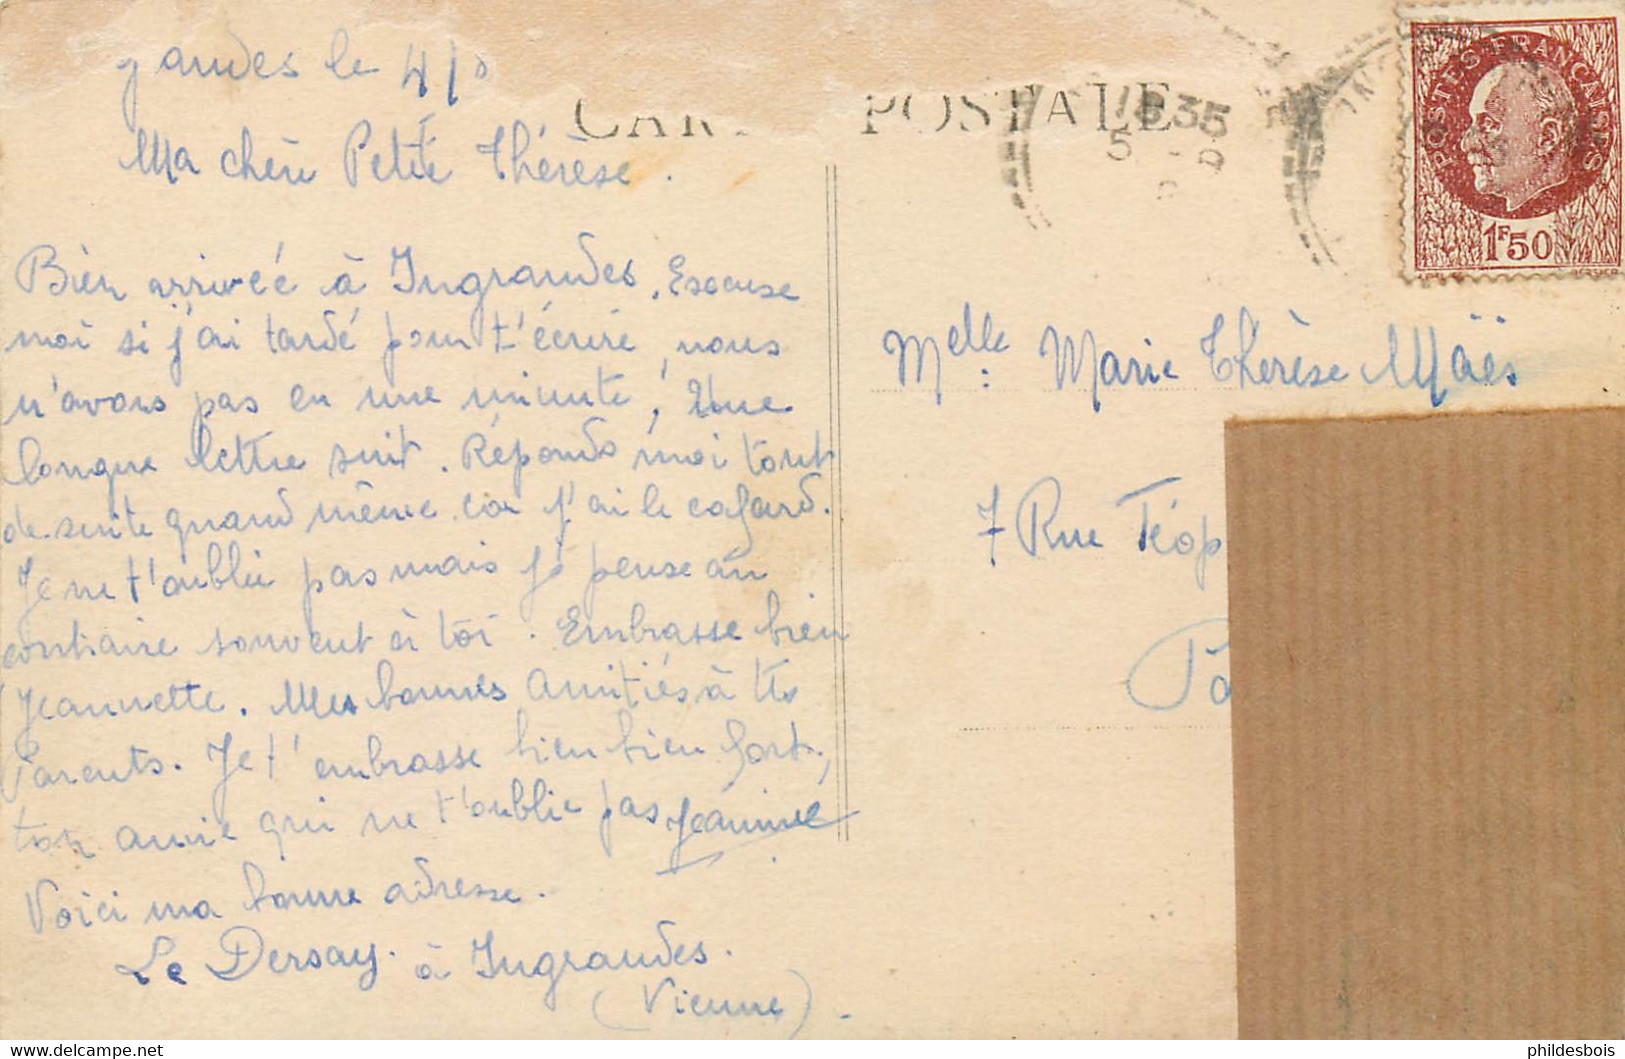 grandes le 4/
CARTE POSTALE
18 35
5 - 9
POSTES FRANÇAISES
1F50
Ma chère Petite Thérèse.
Bien arrivée à Ingrandes. Excuse
moi si j'ai tardé pour t'écrire, nous
n'avons pas eu une minute, Une
longue lettre suit. Réponds moi tout
de suite quand même car j'ai le cafard.
Je ne t'oublie pas mais je pense au
contraire souvent à toi. Embrasse bien
Jeannette. Mes bonnes Amitiés à tes
Parents. Je t'embrasse bien bien fort,
ton amie qui ne t'oublie pas Jeannine
Voici ma bonne adresse.
Le Dersay. à Ingrandes.
(Vienne).
Melle: Marie Thérèse Maës
7 Rue Téop
Pa
phildesbois